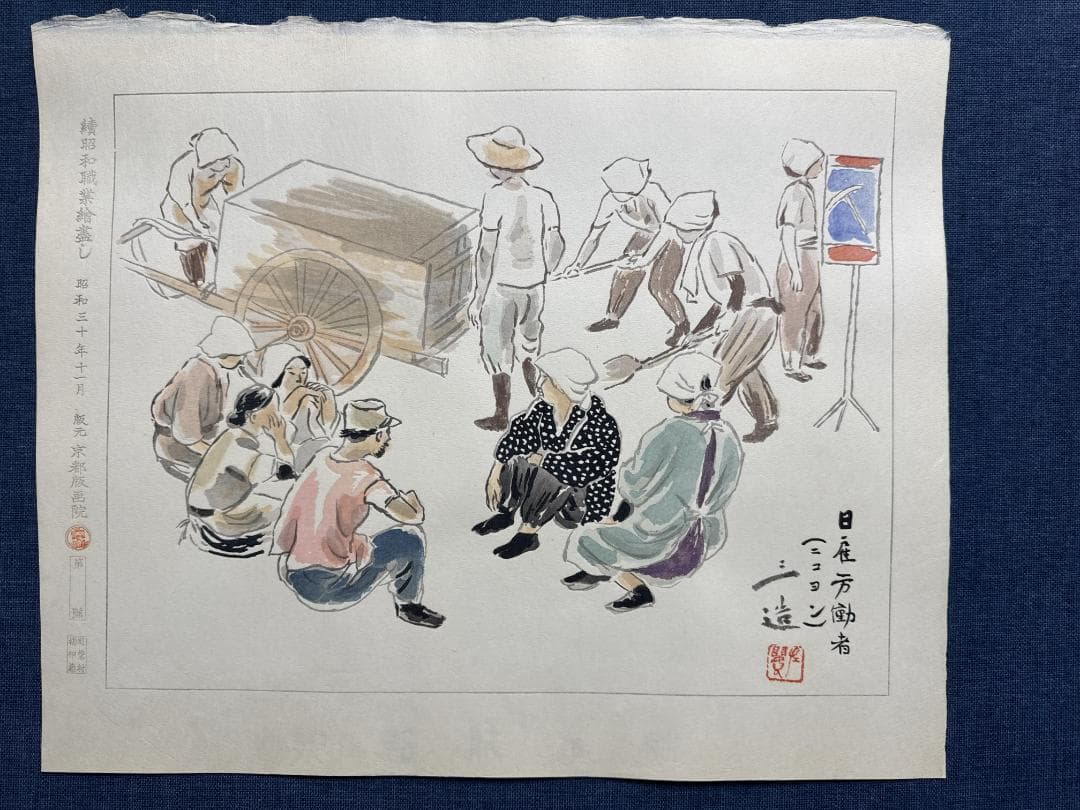 日雇労働者
(ニコヨン)
三造
續昭和職業繪盡し 昭和三十年十一月 版元 京都版画院
第 號